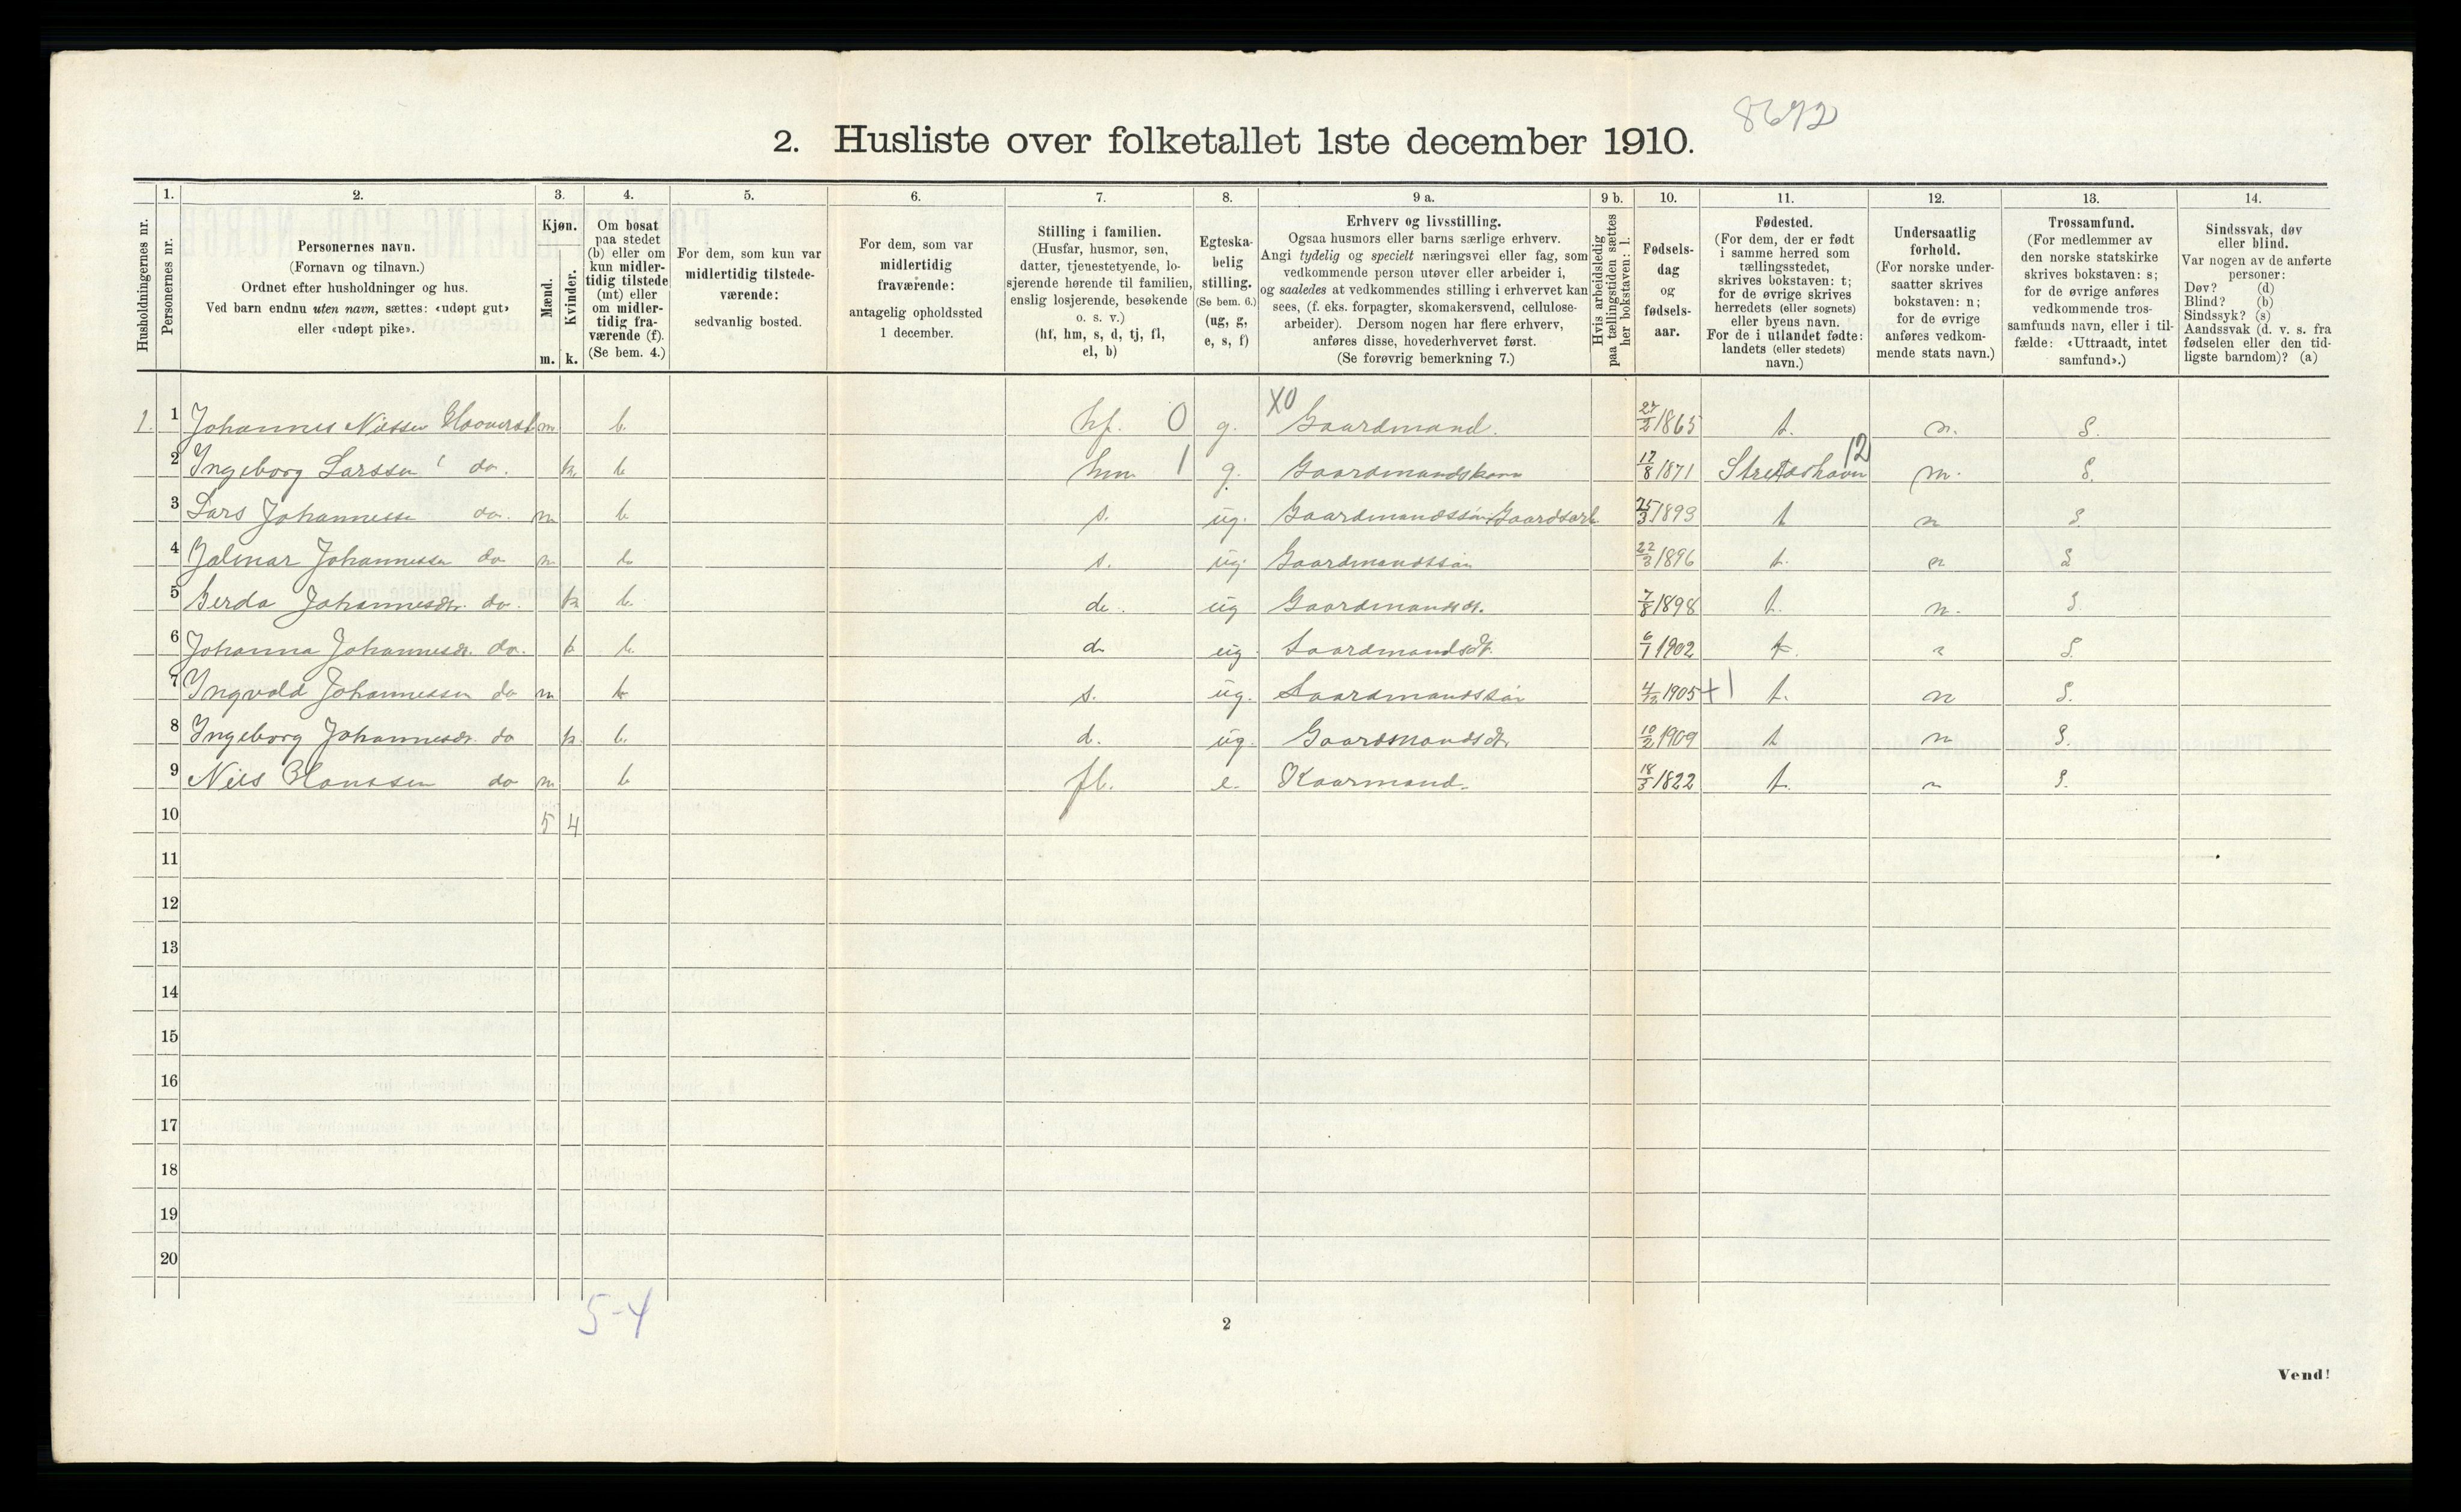 8692
2. Husliste over folketallet 1ste december 1910.
Husholdningernes nr.
1.
Personernes nr.
2.
Personernes navn.
(Fornavn og tilnavn.)
Ordnet efter husholdninger og hus.
Ved barn endnu uten navn, sættes: «udøpt gut»
eller «udøpt pike».
3.
Kjøn.
Mænd.
Kvinder.
m. k.
4.
Om bosat
paa stedet
(b) eller om
kun midler-
tidig tilstede
(mt) eller
om midler-
tidig fra-
værende (f).
(Se bem. 4.)
5.
For dem, som kun var
midlertidig tilstede-
værende:
sedvanlig bosted.
6.
For dem, som var
midlertidig
fraværende:
antagelig opholdssted
1 december.
7.
Stilling i familien.
(Husfar, husmor, søn,
datter, tjenestetyende, lo-
sjerende hørende til familien,
enslig losjerende, besøkende
o. s. v.)
(hf, hm, s, d, tj, fl,
el, b)
8.
Egteska-
belig
stilling.
(Se bem. 6.)
(ug, g,
e, s, f)
9 a.
Erhverv og livsstilling.
Ogsaa husmors eller barns særlige erhverv.
Angi tydelig og specielt næringsvei eller fag, som
vedkommende person utøver eller arbeider i,
og saaledes at vedkommendes stilling i erhvervet kan
sees, (f. eks. forpagter, skomakersvend, cellulose-
arbeider). Dersom nogen har flere erhverv,
anføres disse, hovederhvervet først.
(Se forøvrig bemerkning 7.)
9 b.
Hvis arbeidsledig
paa tællingstiden sættes
her bokstaven: l.
10.
Fødsels-
dag
og
fødsels-
aar.
11.
Fødested.
(For dem, der er født
i samme herred som
tællingsstedet,
skrives bokstaven: t;
for de øvrige skrives
herredets (eller sognets)
eller byens navn.
For de i utlandet fødte:
landets (eller stedets)
navn.)
12.
Undersaatlig
forhold.
(For norske under-
saatter skrives
bokstaven: n;
for de øvrige
anføres vedkom-
mende stats navn.)
13.
Trossamfund.
(For medlemmer av
den norske statskirke
skrives bokstaven: s;
for de øvrige anføres
vedkommende tros-
samfunds navn, eller i til-
fælde: «Uttraadt, intet
samfund».)
14.
Sindssvak, døv
eller blind.
Var nogen av de anførte
personer:
Døv? (d)
Blind? (b)
Sindssyk? (s)
Aandssvak (d. v. s. fra
fødselen eller den tid-
ligste barndom)? (a)
1. 1 Johannes Nilssen m b. hf. 0 g. X0 Gaardmand. 27/2 1865 t. n. S.
2 Ingeborg Larssen do. k b hm 1 g. Gaardmandskone 17/8 1871 12 n. S.
3 Lars Johannessen do. m b. s. ug. Gaardmandssøn Gaardsarb. 25/3 1893 t n S.
4 Jalmar Johannessen do m b. s. ug. Gaardmandssøn 22/3 1896 t. n S
5 Gerda Johannesdt. do. k b. d. ug Gaardmandsdt. 7/8 1898 t. n. S.
6 Johanna Johannesdt. do. k b. d. ug Gaardmandsdt. 6/1 1902 t. n S.
7 Ingvald Johannessen do m b s. ug. Gaardmandssøn 4/12 1905 +1 t. n S.
8 Ingeborg Johannesdt. do k. b. d. ug. Gaardmandsdt. 10/2 1909 t n S.
9 Nils Hanssen do m b fl. e. Kaarmand. 18/5 1822 t. n S.
10 5 4
11
12
13
14
15
16
17
18
19
20
5-4
2
Vend!